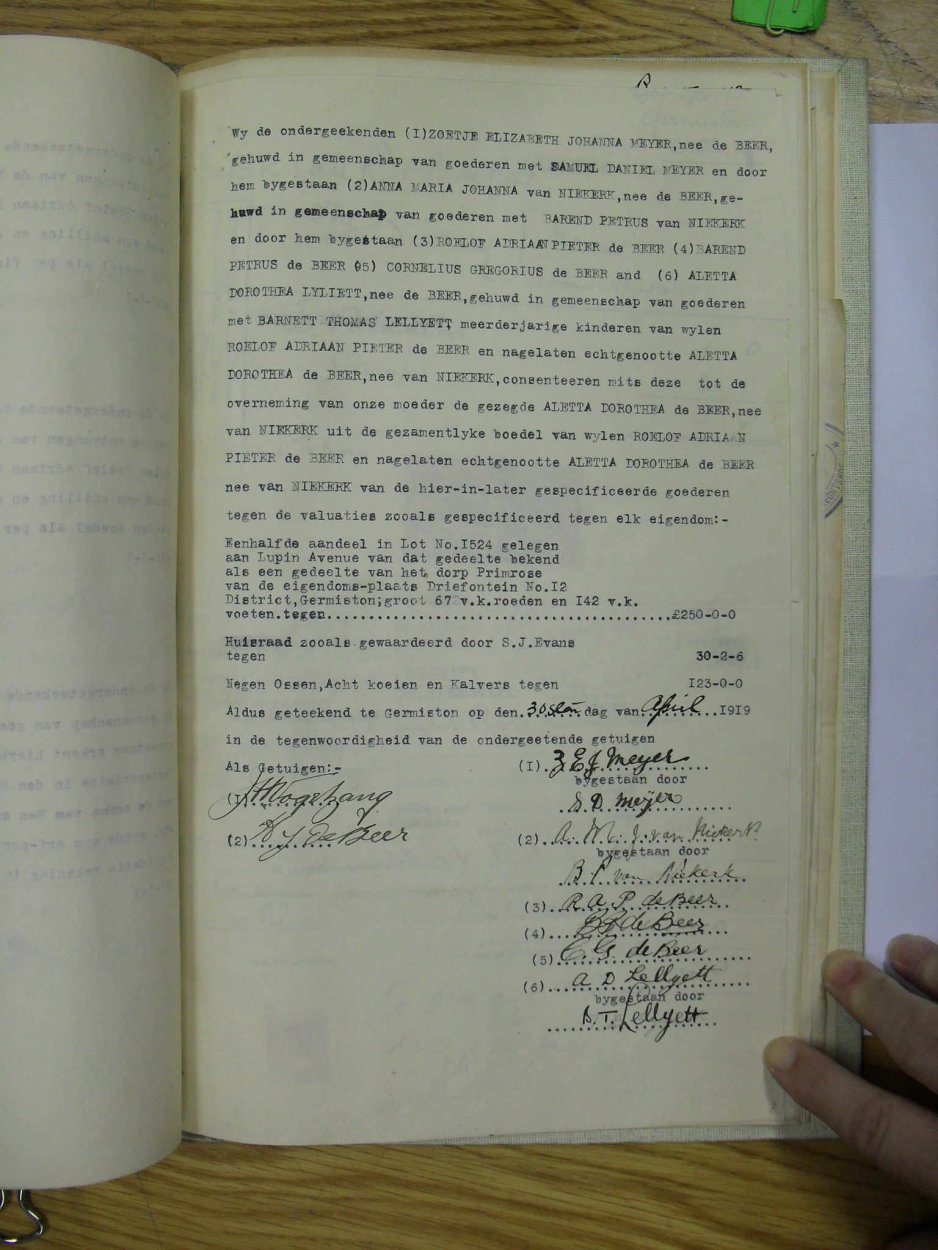 Wy de ondergeekenden (I)ZOETJE ELIZABETH JOHANNA MEYER,nee de BEER,
gehuwd in gemeenschap van goederen met SAMUEL DANIEL MEYER en door
hem bygestaan (2)ANNA MARIA JOHANNA van NIEKERK,nee de BEER,ge-
huwd in gemeenschap van goederen met BAREND PETRUS van NIEKERK
en door hem bygestaan (3)ROELOF ADRIAAN PIETER de BEER (4)BAREND
PETRUS de BEER (5) CORNELIUS GREGORIUS de BEER and (6) ALETTA
DOROTHEA LYLIETT,nee de BEER,gehuwd in gemeenschap van goederen
met BARNETT THOMAS LELLYETT, meerderjarige kinderen van wylen
ROELOF ADRIAAN PIETER de BEER en nagelaten echtgenootte ALETTA
DOROTHEA de BEER,nee van NIEKERK,consenteeren mits deze tot de
overneming van onze moeder de gezegde ALETTA DOROTHEA de BEER,nee
van NIEKERK uit de gezamentlyke boedel van wylen ROELOF ADRIAAN
PIETER de BEER en nagelaten echtgenootte ALETTA DOROTHEA de BEER
nee van NIEKERK van de hier-in-later gespecificeerde goederen
tegen de valuaties zooals gespecificeerd tegen elk eigendom:-
Eenhalfde aandeel in Lot No.I524 gelegen
aan Lupin Avenue van dat gedeelte bekend
als een gedeelte van het dorp Primrose
van de eigendoms-plaats Driefontein No.I2
District,Germiston;groot 67 v.k.roeden en I42 v.k.
voeten.tegen........................................£250-0-0
Huisraad zooals gewaardeerd door S.J.Evans
tegen 30-2-6
Negen Ossen,Acht koeien en Kalvers tegen I23-0-0
Aldus geteekend te Germiston op den 30sten dag van April 1919
in de tegenwoordigheid van de ondergeetende getuigen
Als Getuigen:- (I) Z E J Meyer
bygestaan door
(I) S D Meyer
(2) de Beer (2) A. M. J. van Niekerk
bygestaan door
B P van Niekerk
(3) R A P de Beer
(4) B P de Beer
(5) C G de Beer
(6) A D Lellyett
bygestaan door
B.T. Lellyett